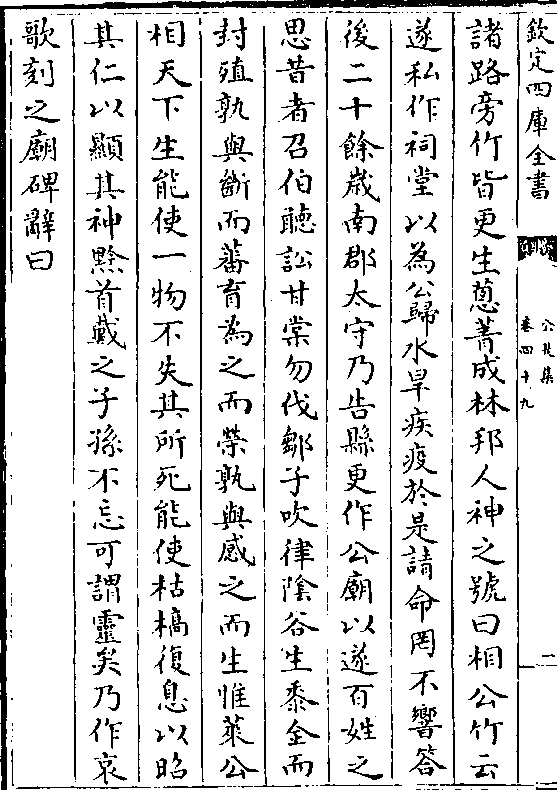 欽定四庫全書
公是集
卷四十九
二
諸路旁竹皆更生蔥菁成林邦人神之號曰相公竹云
遂私作祠堂以為公歸水旱疾疫於是請命罔不響答
後二十餘嵗南郡太守乃告縣更作公廟以遂百姓之
思昔者召伯聽訟甘棠勿伐鄒子吹律陰谷生黍全而
封殖孰與斷而蕃育為之而榮孰與感之而生惟萊公
相天下生能使一物不失其所死能使枯槁復息以昭
其仁以顯其神黔首戴之子孫不忘可謂靈矣乃作哀
歌刻之廟碑辭曰